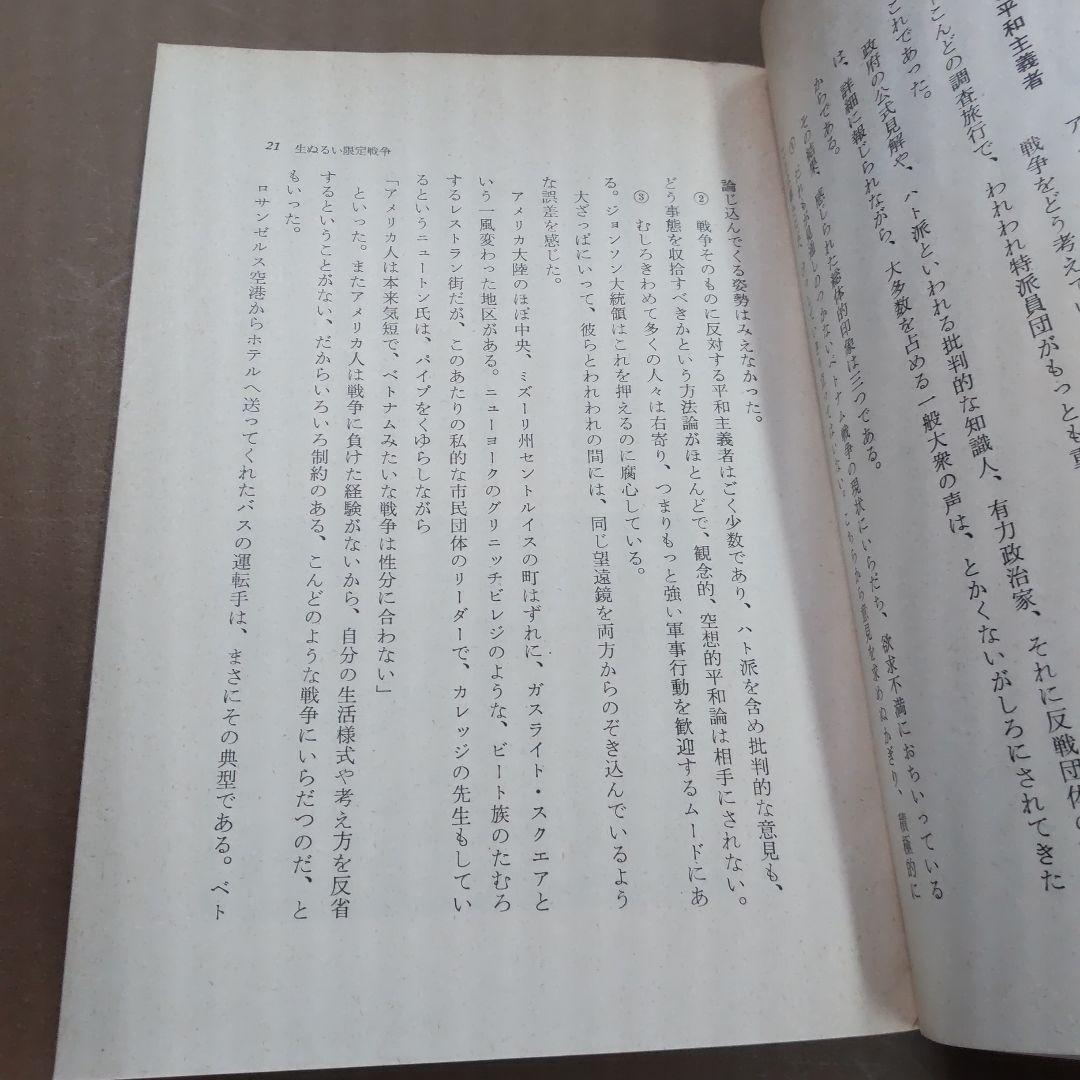 平和主義者
戦争をどう考えてい
こんどの調査旅行で、われわれ特派員団がもっとも重
これであった。
政府の公式見解や、ハト派といわれる批判的な知識人、有力政治家、それに反戦団体の
は、詳細に報じられながら、大多数を占める一般大衆の声は、とかくないがしろにされてきた
からである。
その結果、感じられた総体的印象は三つである。
ベトナム戦争の現状にいらだち、欲求不満におちいっている
こちらから意見を求めぬかぎり、積極的に
論じ込んでくる姿勢はみえなかった。
② 戦争そのものに反対する平和主義者はごく少数であり、ハト派を含め批判的な意見も、
どう事態を収拾すべきかという方法論がほとんどで、観念的、空想的平和論は相手にされない。
③ むしろきわめて多くの人々は右寄り、つまりもっと強い軍事行動を歓迎するムードにあ
る。ジョンソン大統領はこれを押えるのに腐心している。
大ざっぱにいって、彼らとわれわれの間には、同じ望遠鏡を両方からのぞき込んでいるよう
な誤差を感じた。
アメリカ大陸のほぼ中央、ミズーリ州セントルイスの町はずれに、ガスライト・スクエアと
いう一風変わった地区がある。ニューヨークのグリニッチビレジのような、ビート族のたむろ
するレストラン街だが、このあたりの私的な市民団体のリーダーで、カレッジの先生もしてい
るというニュートン氏は、パイプをくゆらしながら
「アメリカ人は本来気短で、ベトナムみたいな戦争は性分に合わない」
といった。またアメリカ人は戦争に負けた経験がないから、自分の生活様式や考え方を反省
するということがない、だからいろいろ制約のある、こんどのような戦争にいらだつのだ、と
もいった。
ロサンゼルス空港からホテルへ送ってくれたバスの運転手は、まさにその典型である。ベト
21 生ぬるい限定戦争